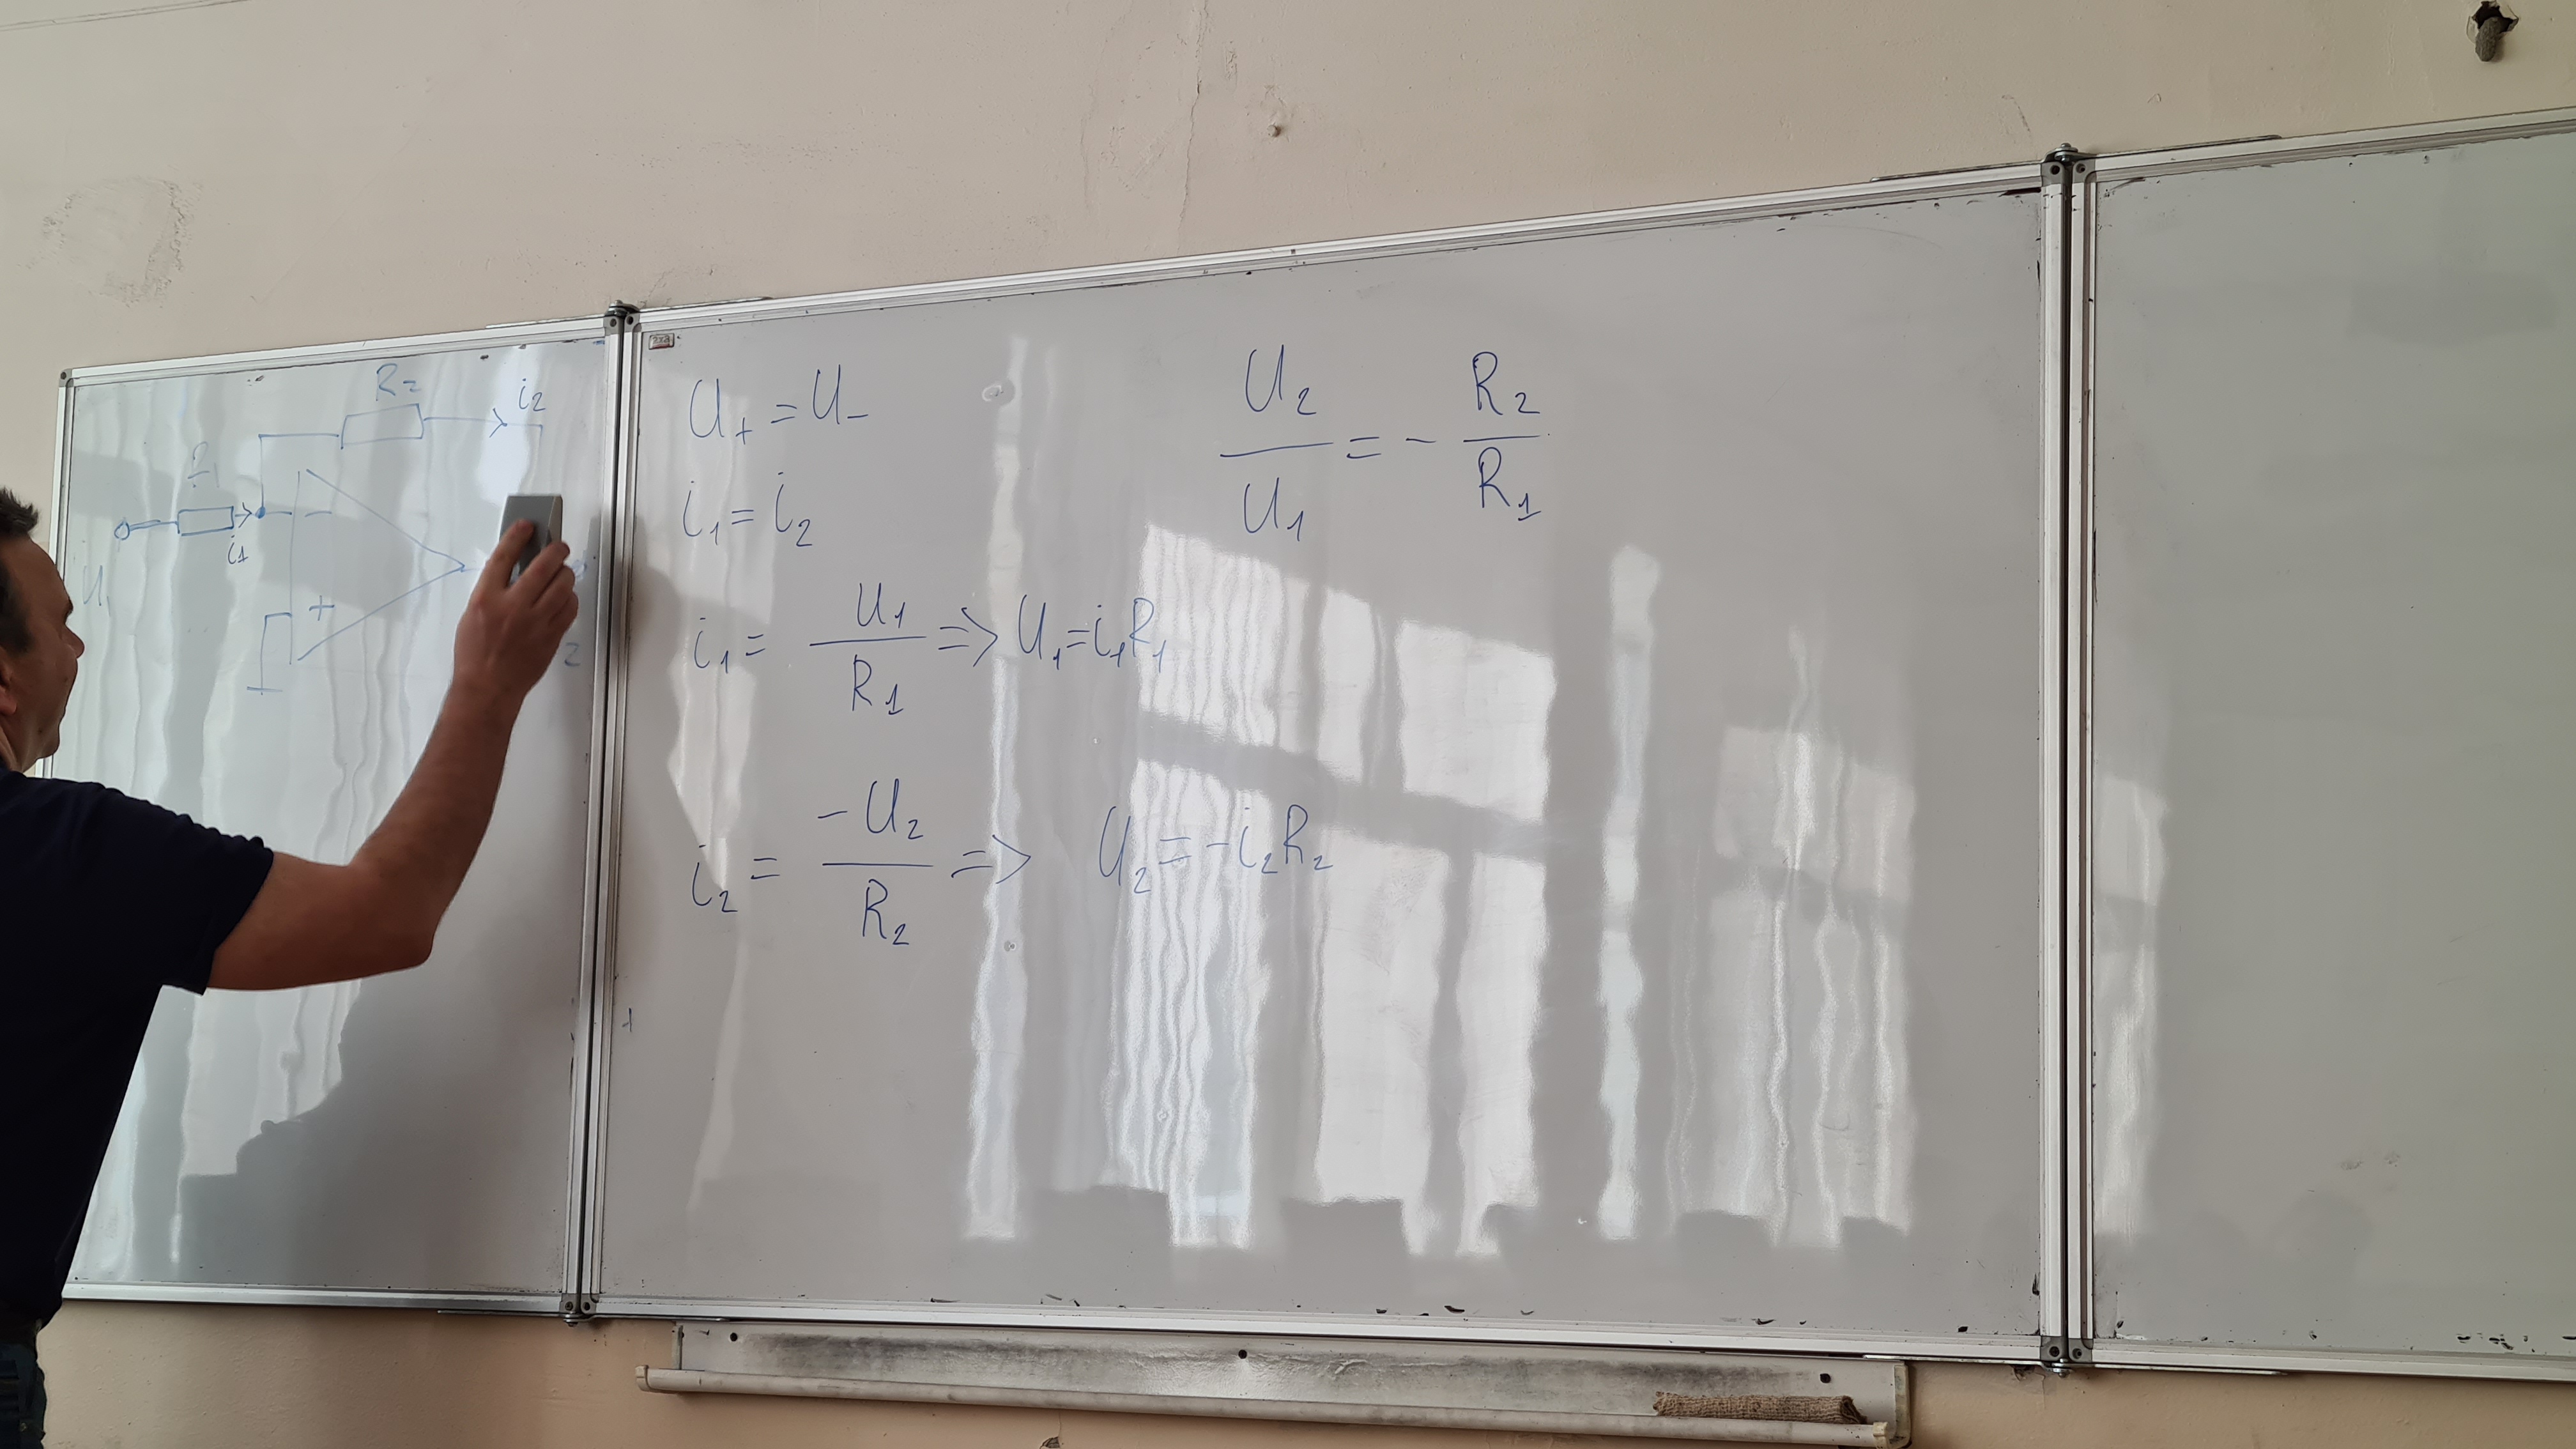 R2 i2
R1
i1
U1
−
+
2
U+ = U−
i1 = i2
i1 = U1/R1 => U1 = i1R1
i2 = −U2/R2 => U2 = −i2R2
U2/U1 = − R2/R1